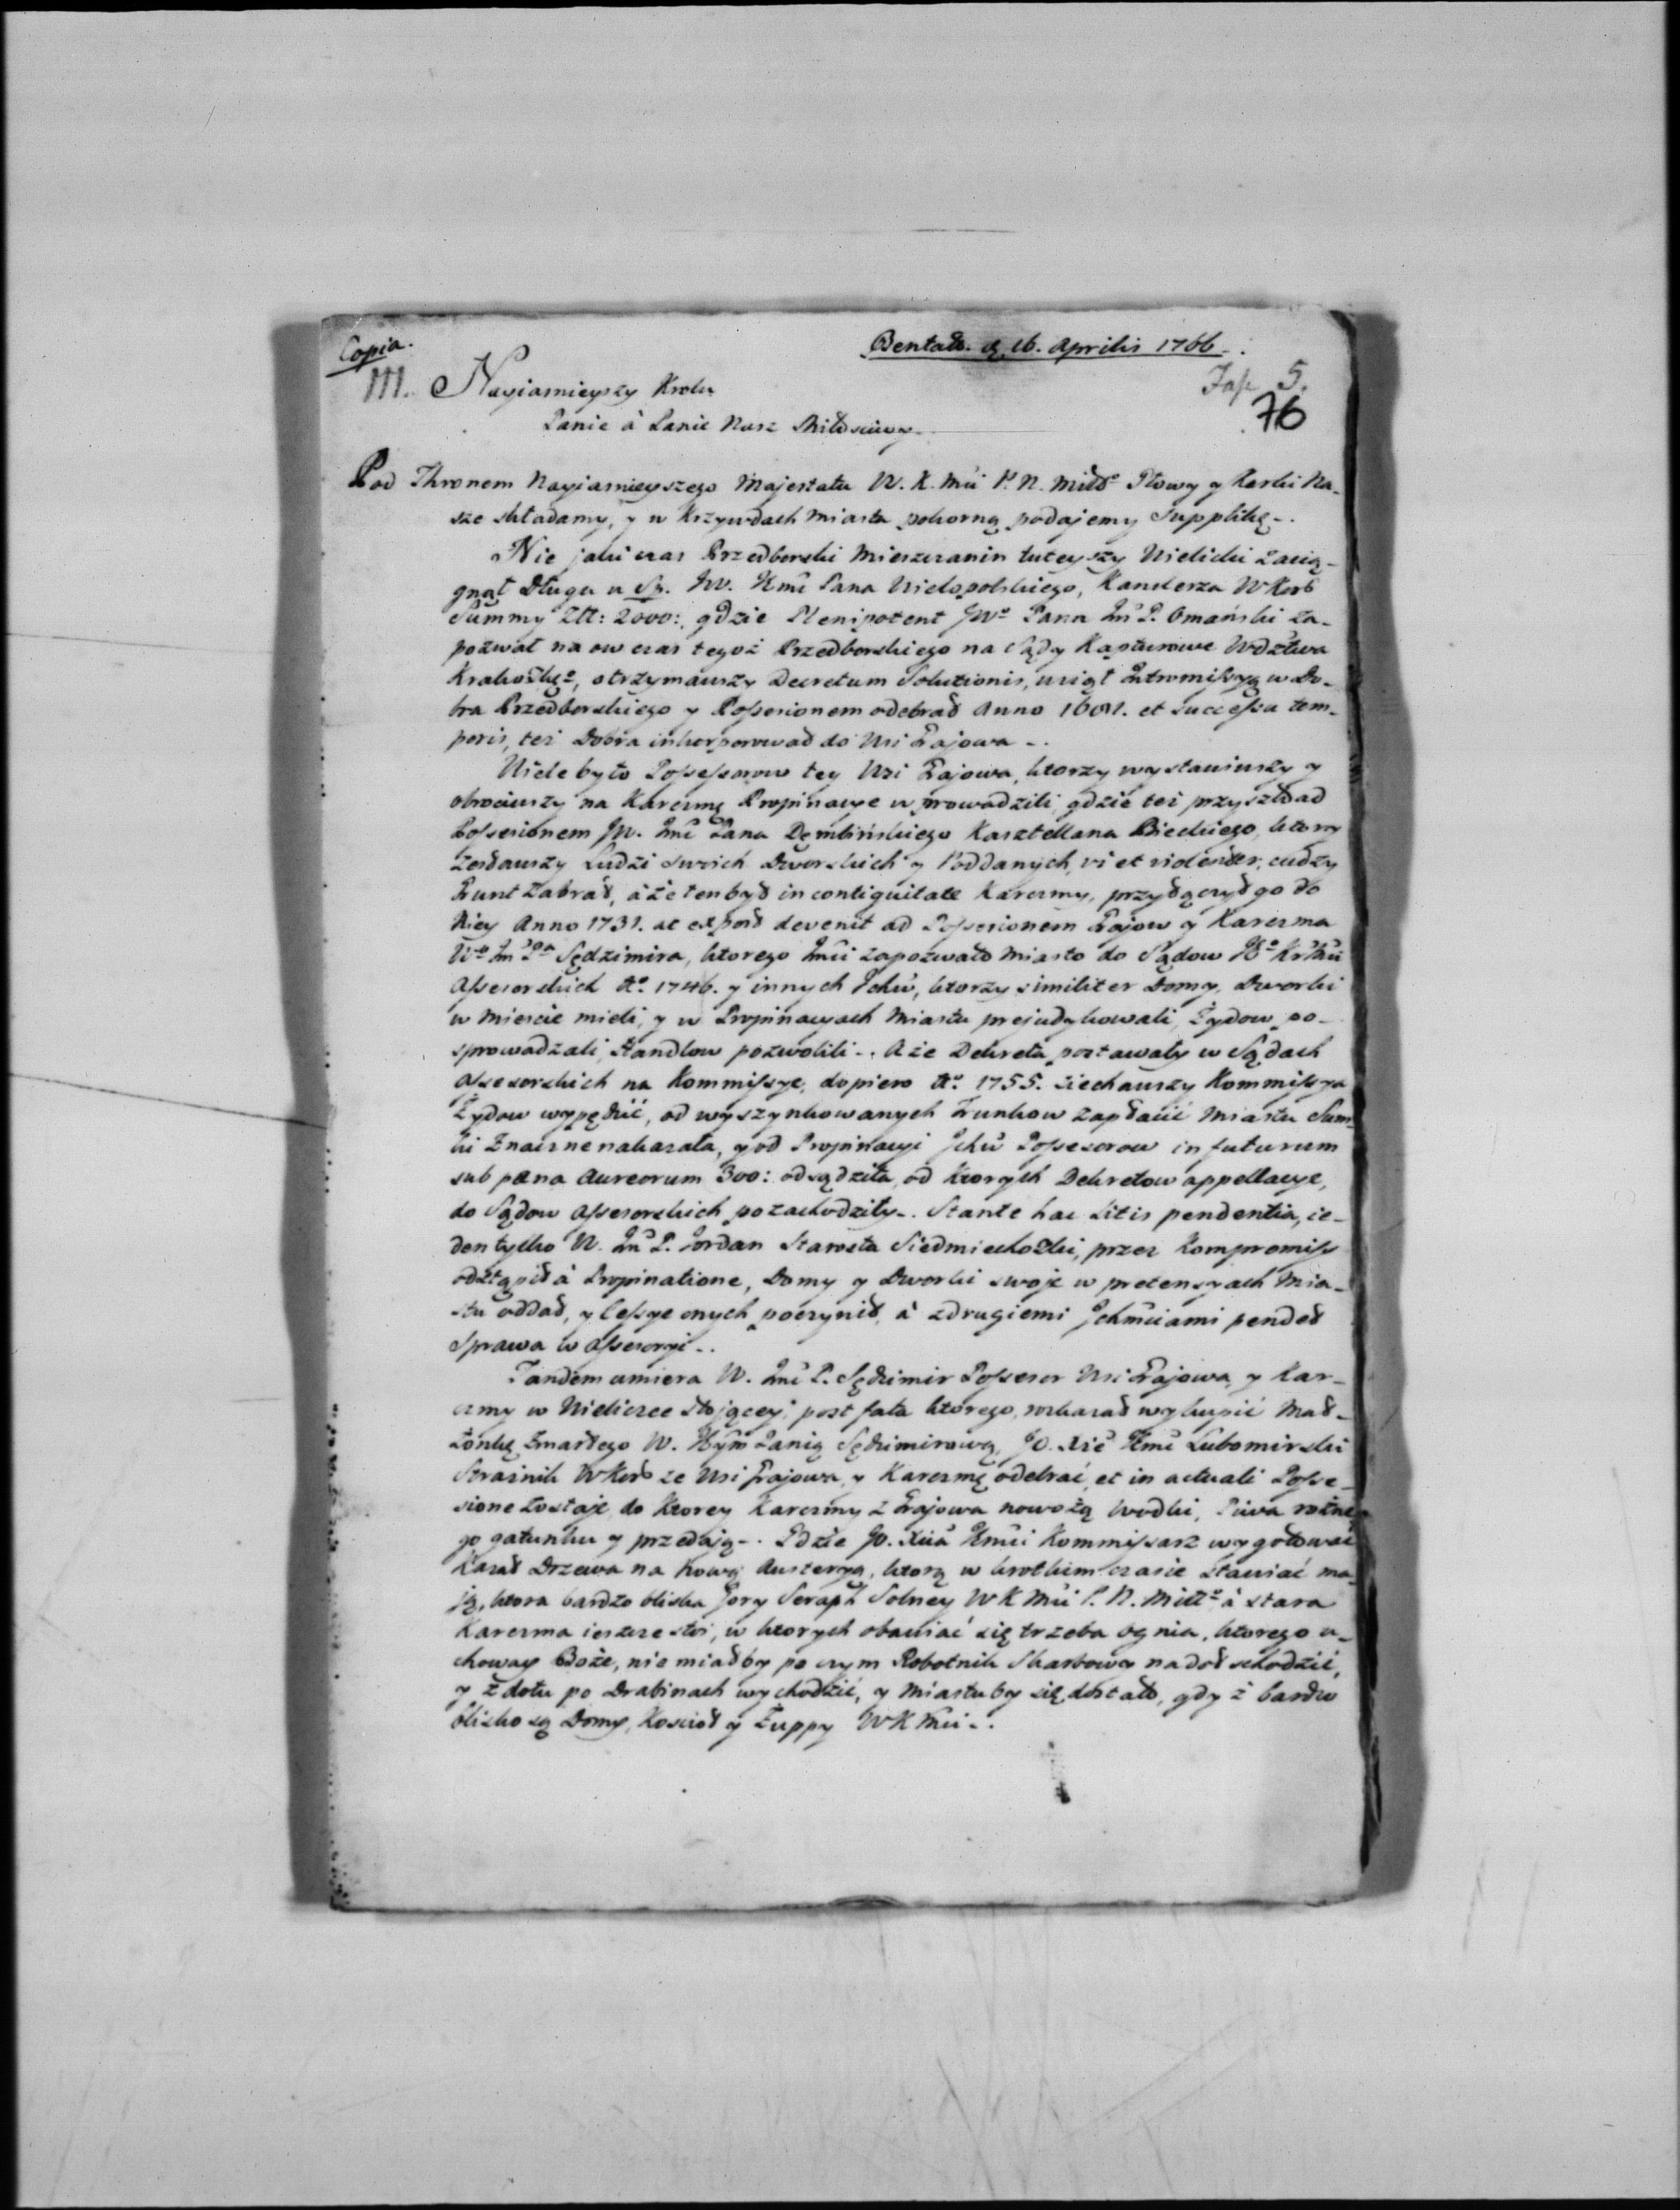 Copia.
Bentał. d. 16. Aprilis 1766.
III. Nayiasnieyszy Krolu
5.
Panie à Panie Nasz Miłosciwy
76
Pod Thronem Nayiasnieyszego Majestatu W. K. Mci P. N. Miłłº Głowy y Karki Na-
sze składamy, y w Krzywdach Miasta pokorną podajemy Supplikę.
Nie jaki czas Przedborski Mieszczanin tuteyszy Wielicki zacią-
gnął Długu u Sp. JW. Jmci Pana Wielopolskiego, Kanclerza W Kor
Summy Złł: 2000: gdzie Plenipotent JWº Pana Jm P. Omański za-
pozwał na ow czas tegoż Przedborskiego na Sądy Kapturowe Wdztwa
Krakoskº, otrzymawszy Decretum Solutionis, wziął Intromissyą w Do-
bra Przedborskiego y Possesionem odebrał Anno 1691. et successu tem-
poris, też Dobra inkorporował do Wsi Grajowa.
Wiele było Possessorow tey Wsi Grajowa, ktorzy wystawiwszy y
obrociwszy na Karczmę Propinacye w prowadzili, gdzie też przyszedł ad
Possesionem JW. Jmć Pana Dęmbińskiego Kasztellana Bieckiego, ktory
zesławszy Ludzi swoich Dworskich y Poddanych, vi et violenter, cudzy
Grunt zabrał, a że ten był in contiguitate Karczmy, przyłączył go do
Niey Anno 1731. at ex post devenit ad Possesionem Grajow y Karczma
Wº Jm Pa Sędzimira, ktorego Jmci zapozwało Miasto do Sądow Jº Kr Mci
Assesorskich Aº. 1746. y innych Ichm, ktorzy similiter Domy, Dworki
w Miescie mieli, y w Propinacyach Miastu prejudykowali, Żydow po-
sprowadzali, Handlow pozwolili. A że Dekreta postawały w Sądach
Assesorskich na Kommissye, dopiero Aº. 1755. ziechawszy Kommissya
Żydow wypędzić, od wyszynkowanych Trunkow zapłacić Miastu Sum-
ki Znaczne nakazała, y od Propinacyi Ichm Possesorow in futurum
sub pæna Aureorum 300: odsądziła, od ktorych Dekretow appellacye,
do Sądow Assesorskich pozachodziły. Stante hac Litis pendentia, ie-
den tylko W. Jm P. Jordan Starosta Siedmiechoski, przez Kompromiss
odstąpił à Propinatione, Domy y Dworki swoje w pretensyach Mia-
stu oddał, y Cessye onych poczynił, à z drugiemi Jchmciami pendet
Sprawa w Assesoryi.
Tandem umiera W. Jmć P. Sędzimir Possesor Wsi Grajowa, y Kar-
czmy w Wieliczce stojącey, post fata ktorego, rozkazał wykupić Mał-
żonkę Zmarłego W. Jmć Panią Sędzimirową, JO. Xże Jmć Lubomirski
Strażnik W Kor ze Wsi Grajowa, y Karczmę odebrać, et in actuali Posse-
sione zostaje, do ktorey Karczmy z Grajowa nowożą Wodki, Piwa rożne-
go gatunku y przedają. Gdzie JO. Xcia Jmci Kommissarz wygotować
kazał Drzewa na Nową Austeryą, ktorą w krotkim czasie stawiać ma-
ją, ktora bardzo bliska Gory Seraph Solney W K Mci P. N. Miłłº à stara
Karczma ieszcze stoi, w ktorych obawiać się trzeba ognia, ktorego u-
choway Boże, nie miałby po czym Robotnik Skarbowy na doł schodzić,
y z dołu po Drabinach wychodzić, y Miastu by się dostało, gdyż bardzo
blisko są Domy, Kościoł y Żuppy W K Mci.